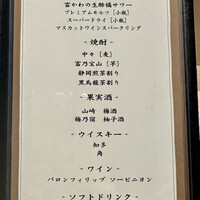 富かわの生檸檬サワー
プレミアムモルツ [小瓶]
スーパードライ [小瓶]
マスカットワインスパークリング
- 焼酎 -
中々 [麦]
富乃宝山 [芋]
静岡煎茶割り
黒烏龍茶割り
- 果実酒 -
山崎 梅酒
梅乃宿 柚子酒
- ウイスキー -
知多
角
- ワイン -
バロンフィリップ ソービニヨン
- ソフトドリンク -